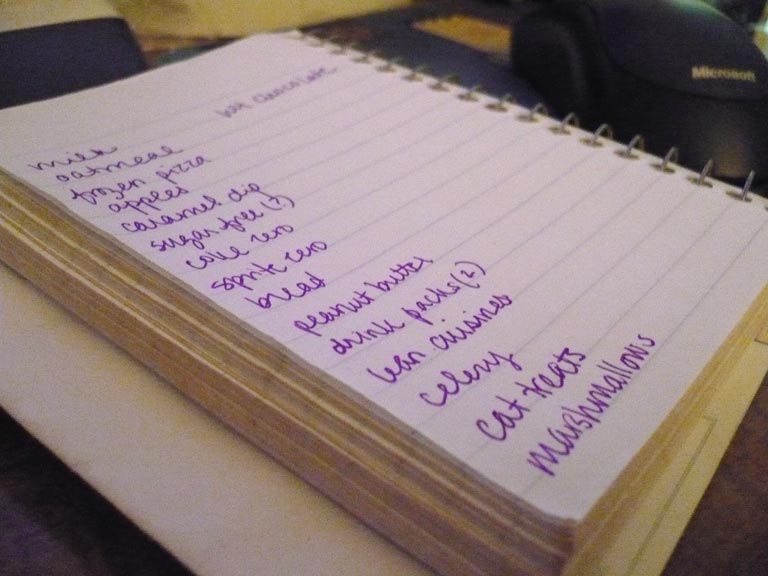 Microsoft
hot chocolate
milk
oatmeal
frozen pizza
apples
caramel dip
sugar free (?)
coke zero
sprite zero
bread
peanut butter
drink packs (2)
lean cuisines
celery
cat treats
marshmallows